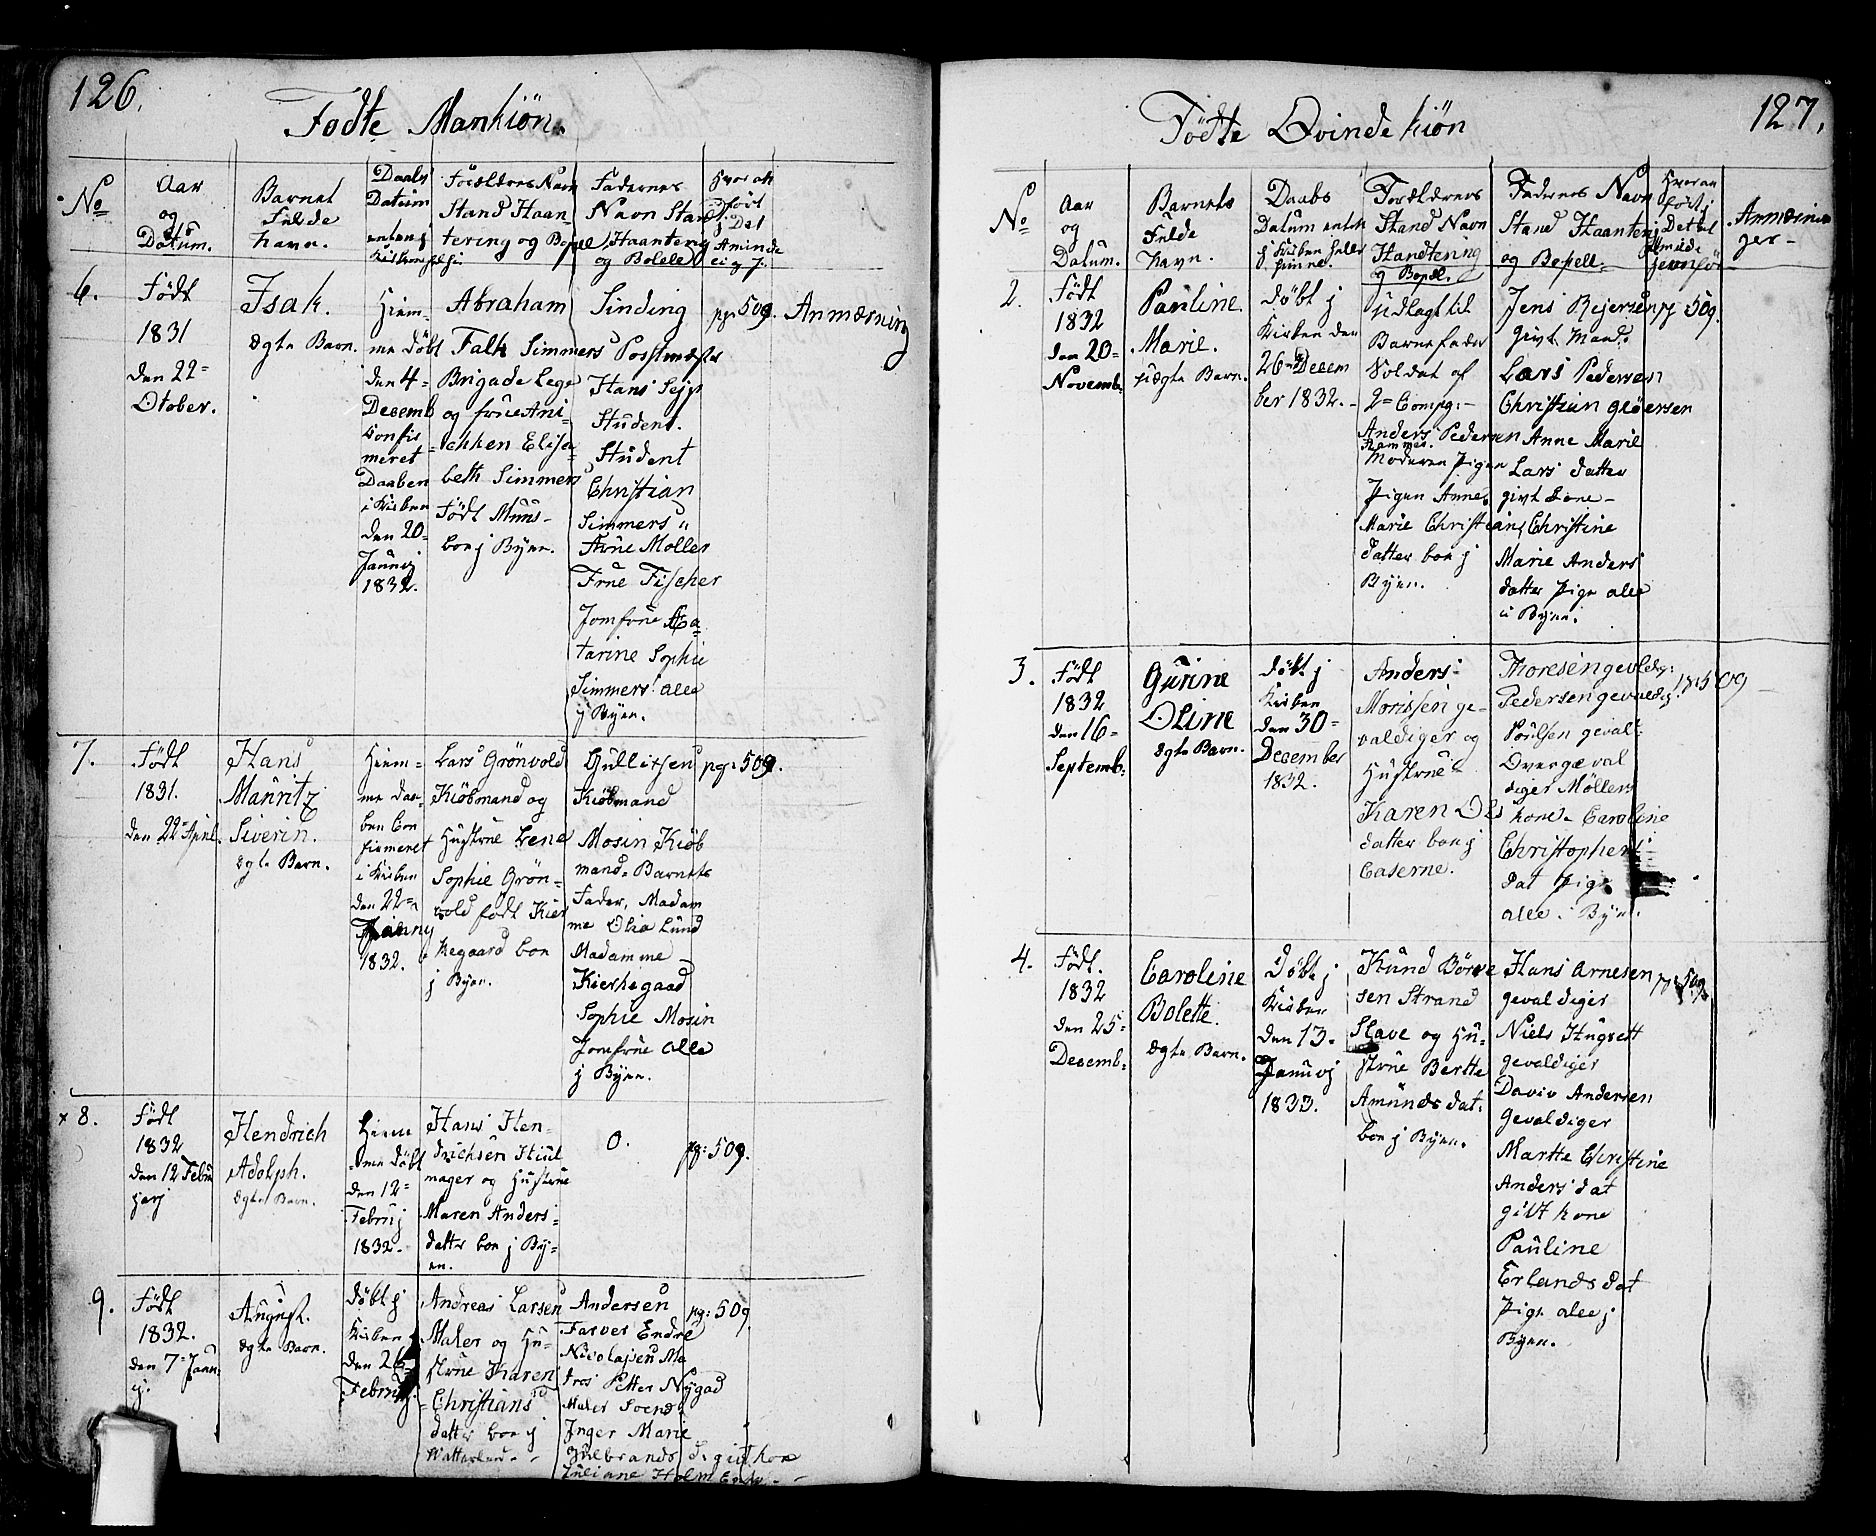 126.
Födte Mankiön.
No
Aar
og
Datum.
Barnet
Fulde
Navn.
Daabs
Datum
enten j
Kirken
Forældres Navn
Stand Haan-
tering og Bopel
Fadernes
Navn Stand
Haantering
og Bolele
Hvor an
fört
j Det
Aminde
6.
Född
1831
den 22-
Otober.
Isak.
ægte Barn.
Hiem-
me döbt
den 4-
Decemb
Confir
meret
Daaben
i Kirken
den 20-
Januj
1832.
Abraham
Falk Simmers
Brigade Lege
og frue Ani-
chken Elisa-
beth Simmers
Född Muus-
boe j Byen.
Sinding
Postmester
Hans Sejp
Student.
Student
Christian
Simmers "
Frue Moller
Frue Fischer
Jomfrue Ca-
tarine Sophie
Simmers alle
j Byen.
pg: 509.
Anmærning
7.
Född
1831.
den 22 April.
Hans
Mauritz
Siverin.
ægte Barn.
Hiem-
me daa-
ben Con
firmeret
i Kirken
den 22-
Januj
1832.
Lars Grönvold
Kiöbmand og
Hustrue Lene
Sophie Grön-
vold född Kier
kegaard boe
j Byen.
Gullitsen
Kiöbmand
Mosin Kiöb
mand. Barnets
Fader, Madam
me Olia Lund
Madamme
Kierkegaad
Sophie Mosin
Jomfrue alle
j Byen.
pg: 509.
x 8.
Född
1832
den 12 Febru
Hendrich
Adolph.
ægte Barn.
Hiem
me döbt
den 12-
Februj
1832.
Hans Hen-
drichsen Hiul
mager og Hustrue
Maren Anders-
datter boe j By-
en.
0.
pg: 509.
9.
Född
1832.
den 7- Janu
j.
August.
ægte Barn.
Döbt j
Kirken
den 26-
Februj.
Andreas Larsen
Maler og Hu-
strue Karen
Christians
datter boe j
Watterland.
Andersen
Farver Endre
Nicolajsen Ma
Petter Nygad
Maler Svend
Inger Marie
Gulbrands D. givt kone
Juliane Holm Enke
pg: 509.
127.
Födte Qvindekiön
No
Aar
og
Datum.
Barnets
Fulde
Navn.
Daabs
Datum enten
j Kirken heller
hiemme.
Forældrenes
Stand Navn
Handtering
og Bopel.
Fadernes Navn
Stand Haantering
og Bopell.
Hvor an
fört j
Det al
minde
Anmærnin
ger-
2.
Född
1832
den 20-
Novemb:
Pauline
Marie.
uægte Barn.
döbt j
Kirken den
26- Decem
ber 1832.
udlagt til
Barnefader
Soldat af
2- Compg:
Anders Pedersen
Moderen Pigen
Pigen Anne
Marie Christians
datter boe j
Byen.
Jens Rejersen
givt Mand.
Lars Pedersen
Christian Glöersen
Anne Marie
Lars datter
givt Kone-
Christine
Marie Anders
datter Pige alle
i Byen.
pg 509.
3.
Född
1832
den 16-
Septemb:
Gurine
Oline
ægte Barn.
döbt j
Kirken
den 30-
December
1832.
Anders
Morissen ge-
valdiger og
Hustrue
Karen Ols
datter boe j
Caserne.
Thoresen gevldig:
Pedersen gevaldig
Poulsen geval:
Overgæval
diger Möllers
kone. Caroline
Christophers
dat Pige
alle i Byen.
pg 509
4.
Född.
1832
den 25-
Decemb:
Caroline
Bolette.
ægte Barn.
Döbt j
Kirken
den 13-
Januvj
1833.
Knud Börre
sen Strand
Slave og Hu-
strue Berthe
Amunds dat:
boe j Byen.
Hans Arnesen
gevaldiger
Niels Hugsett
gevaldiger
Daviv Andersen
Gevaldiger
Marthe Christine
Anders dat
givt kone
Pauline
Erlands dat
Pige alle j
Byen.
pg: 509